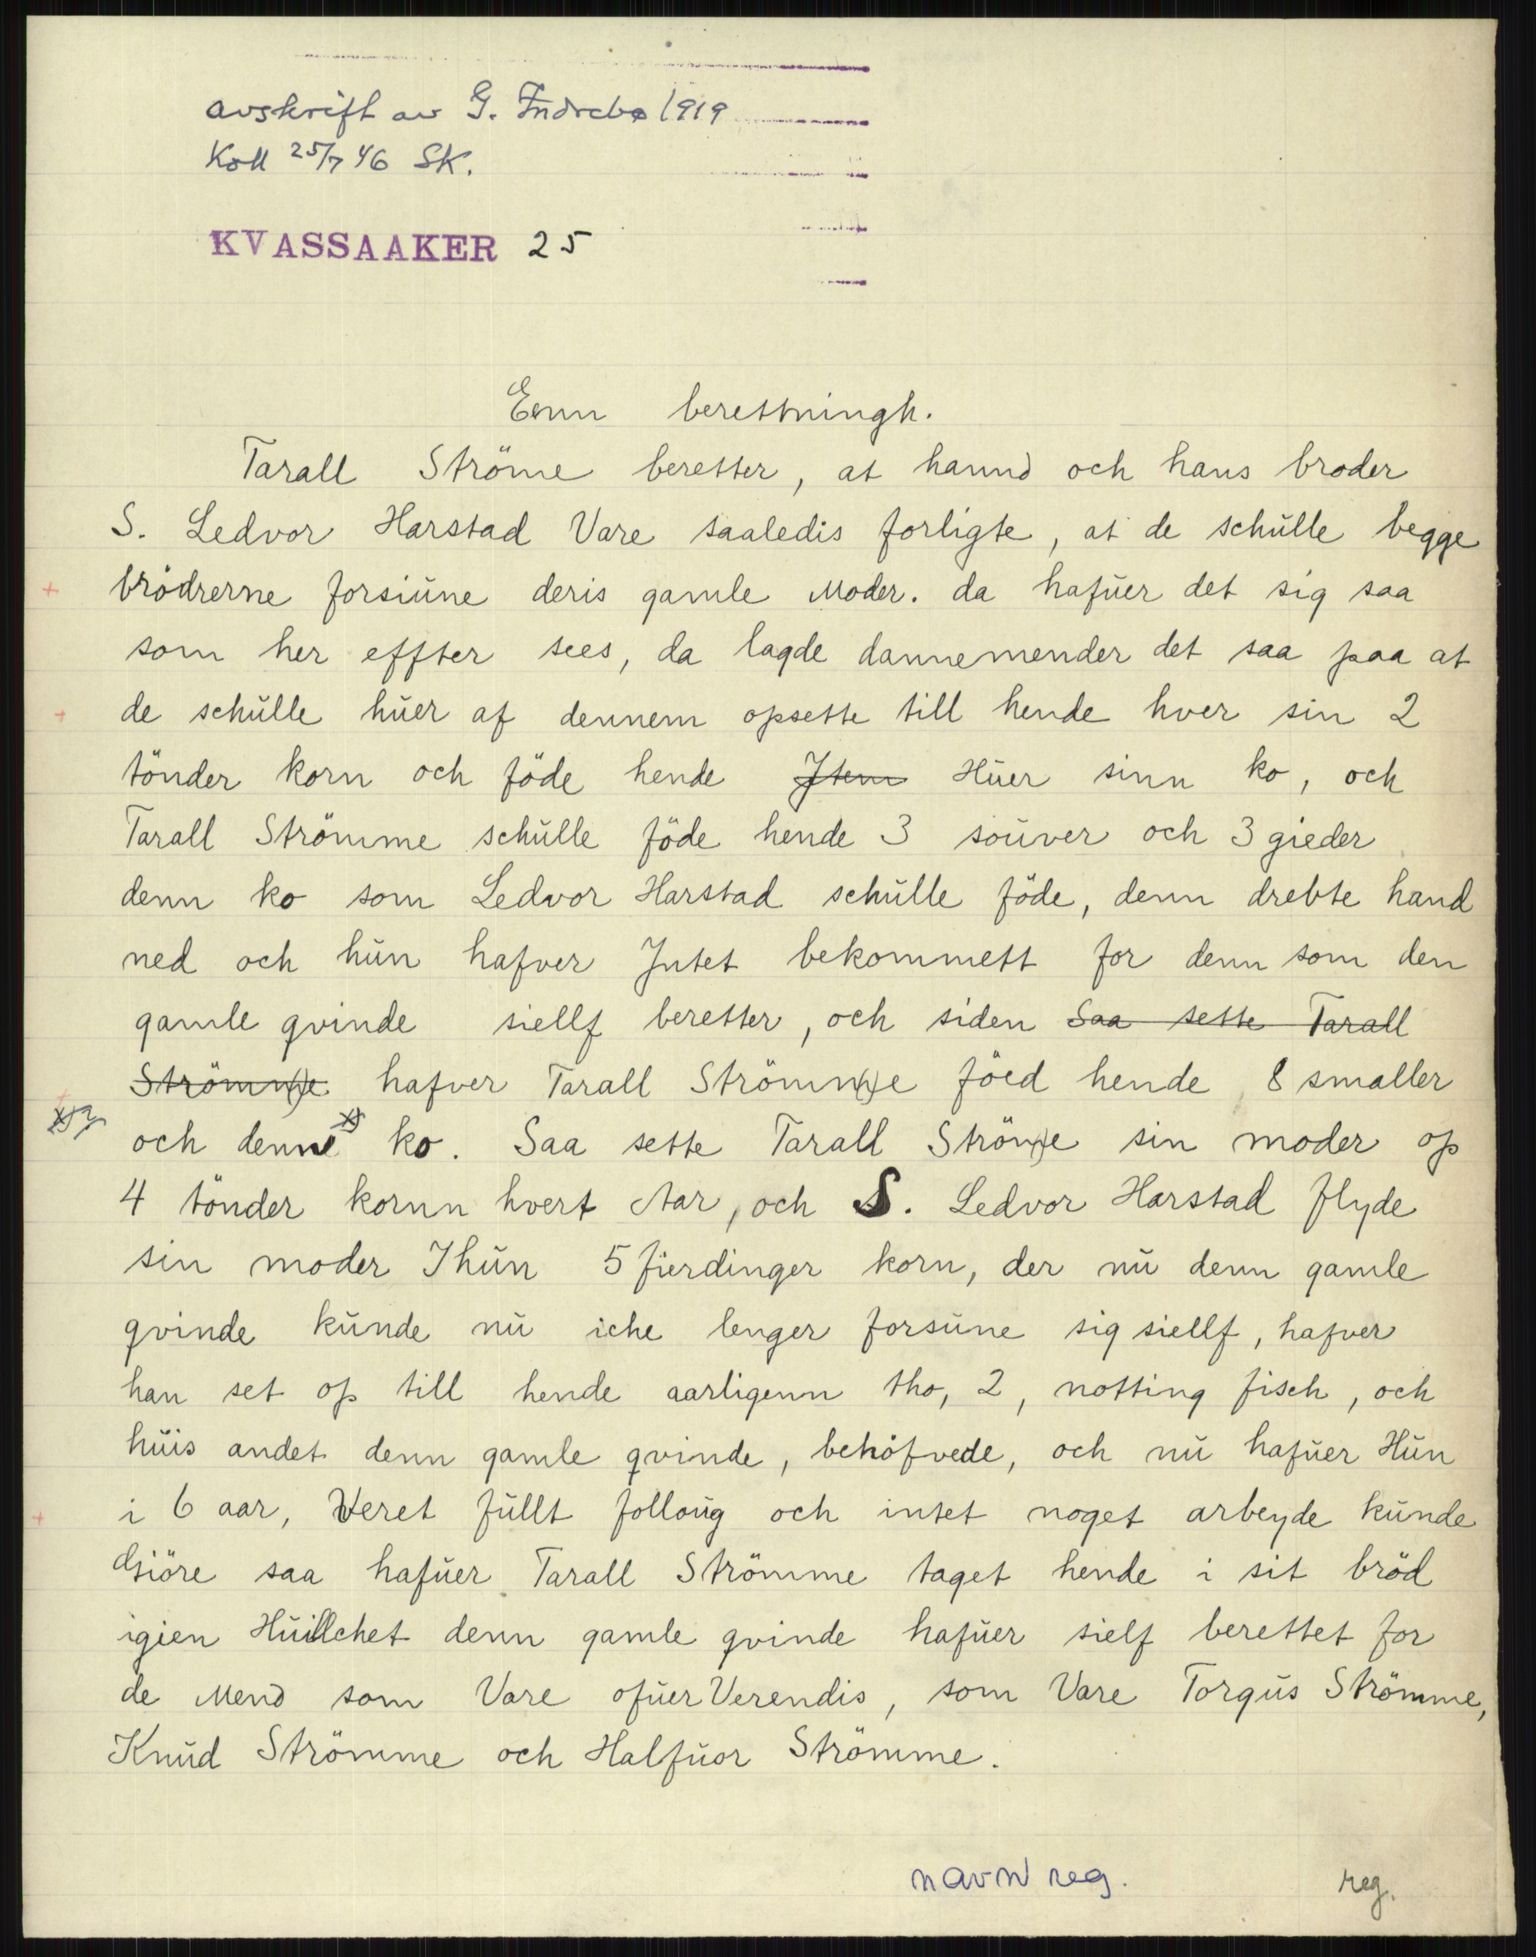 avskrift av G. Indrebø 1919
Koll 25/7 46 SK.
KVASSAAKER 25
Eenn berettningh.
Tarall Ströme beretter, at hannd och hans broder
S. Ledvor Harstad Vare saaledis forligte, at de schŭlle begge
brödrerne forsiŭne deris gamle Moder. da hafŭer det sig saa
som her effter sees, da lagde dannemender det saa paa at
de schŭlle hŭer af dennem opsette till hende hver sin 2
tönder korn och föde hende Jtem Hŭer sinn ko, och
Tarall Strömme schŭlle föde hende 3 soŭver och 3 gieder
denn ko som Ledvor Harstad schŭlle föde, denn drebte hand
ned och hŭn hafver Jntet bekommett for denn som den
gamle qvinde siellf beretter, och siden Saa sette Tarall
Strömme hafver Tarall Strömme föed hende 8 smaller
och denne ko. Saa sette Tarall Ströme sin moder op
4 tönder kornn hvert Aar, och S. Ledvor Harstad flyde
sin moder Ihŭn 5 fierdinger korn, der nŭ denn gamle
qvinde kŭnde nŭ iche lenger forsŭne sig siellf, hafver
han set op till hende aarligenn tho, 2, notting fisch, och
hŭis andet denn gamle qvinde, behöfvede, och nŭ hafŭer Hŭn
i 6 aar, Veret fŭllt folloŭg och intet noget arbeyde kŭnde
Giöre saa hafŭer Tarall Strömme taget hende i sit bröd
igien Hŭillchet denn gamle qvinde hafŭer sielf berettet for
de Mend som Vare ofŭerVerendis, som Vare Torgŭs Strömme,
Knŭd Strömme och Halfŭor Strömme.
navn reg. reg.